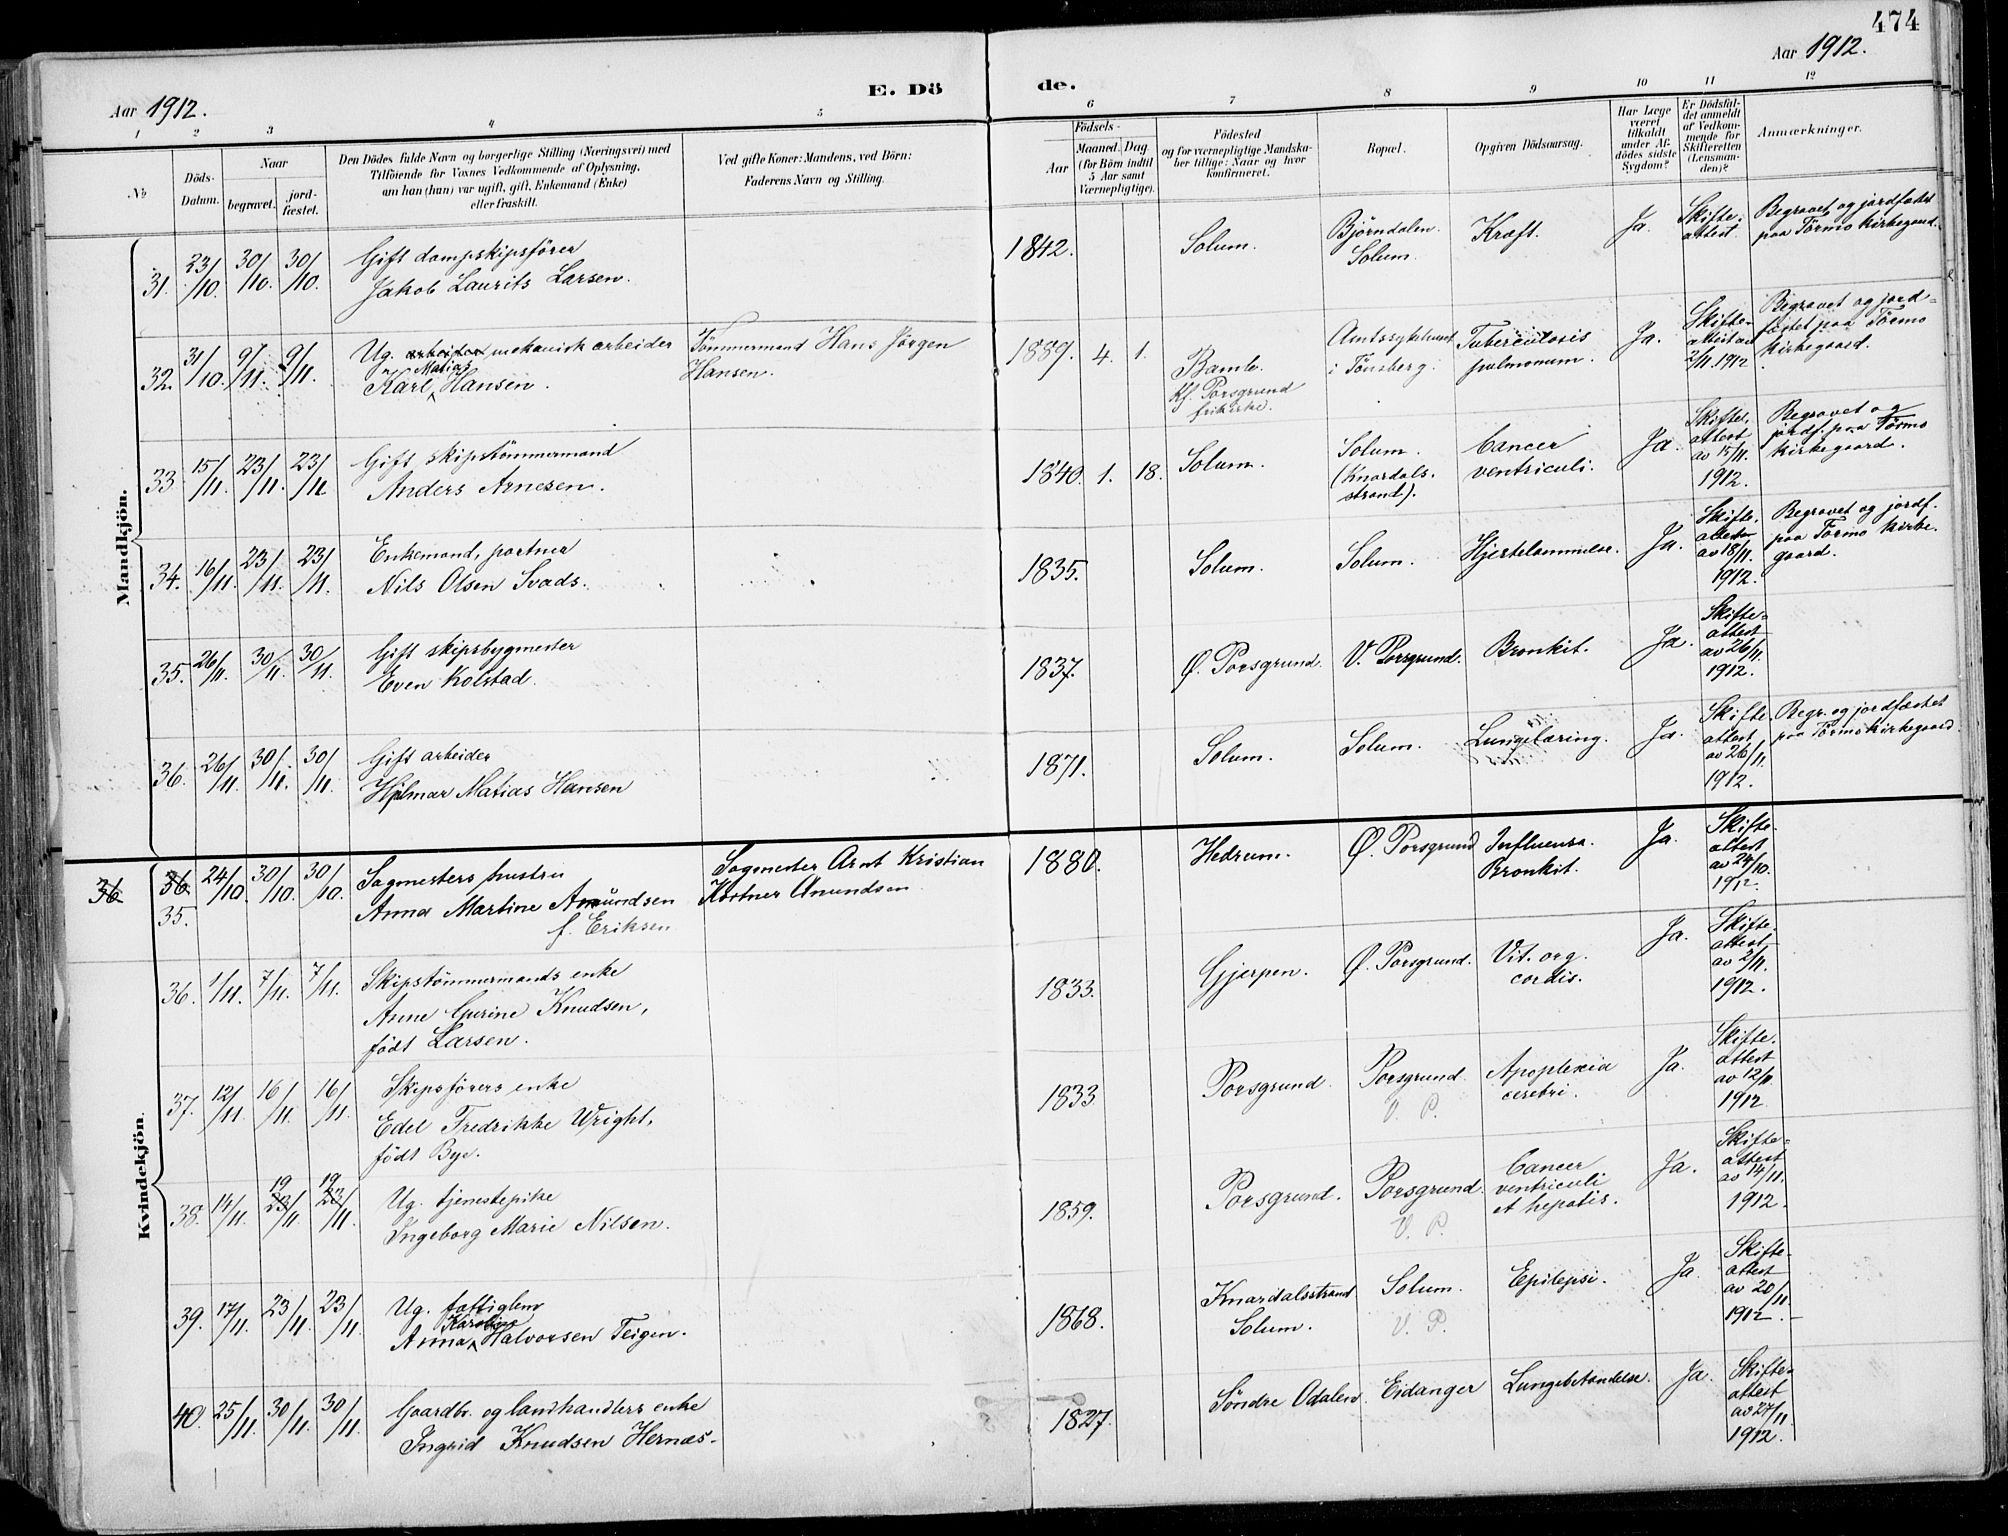 474
Aar 1912.
E. Dö
de.
Aar 1912.
1 2 3 4 5 6 7 8 9 10 11 12
No
Döds-
Datum.
Naar
begravet.
jord-
fæstet.
Den Dödes fulde Navn og borgerlige Stilling (Næringsvei) med
Tilföiende for Voxnes Vedkommende af Oplysning,
om han (hun) var ugift, gift, Enkemand (Enke)
eller fraskilt.
Ved gifte Koner: Mandens, ved Börn:
Faderens Navn og Stilling.
Födsels-
Aar
Maaned. Dag.
(for Börn indtil
5 Aar samt
Værnepligtige).
Födested
og for værnepligtige Mandska-
ber tillige: Naar og hvor
konfirmeret.
Bopæl.
Opgiven Dödsaarsag.
Har Læge
været
tilkaldt
under Af-
dödes sidste
Sygdom?
Er Dödsfal-
det anmeldt
af Vedkom-
mende for
Skifteretten
(Lensman-
den)?
Anmærkninger.
Mandkjön.
31. 23/10. 30/10. 30/10.
Gift dampskipsfører
Jakob Laurits Larsen.
1842.
Solum.
Bjørndalen.
Solum.
Kræft.
Ja.
Skifte-
attest.
Begravet og jordfæstet
paa Tørmo kirkegaard.
32. 31/10. 9/11. 9/11.
Ug. arbeider mekanisk arbeider
Matias
Karl Hansen.
Tømmermand Hans Jörgen
Hansen.
1889. 4. 1.
Bamle.
Kf. Porsgrund
frikirke.
Amtssykehuset
i Tönsberg.
Tuberculosis
pulmonum.
Ja.
Skifte-
attest av
2/11. 1912
Begravet og jord-
fæstet paa Tørmo
kirkegaard.
33. 15/11. 23/11. 23/11
Gift skipstömmermand
Anders Arnesen.
1840. 1. 18.
Solum.
Solum.
(Knardals-
strand).
Cancer
ventriculi.
Ja.
Skifte-
attest
av 15/11.
1912.
Begravet og
jordf. paa Tørmo
kirkegaard.
34. 16/11. 23/11. 23/11.
Enkemand, portner
Nils Olsen Svads.
1835.
Solum.
Solum.
Hjertelammelse.
Ja.
Skifte-
attest
av 18/11.
1912.
Begravet og jordf.
paa Tørmo kirke-
gaard.
35. 26/11. 30/11. 30/11.
Gift skipsbygmester
Even Kolstad.
1837.
Ø. Porsgrund.
V. Porsgrund.
Bronkit.
Ja.
Skifte-
attest
av 26/11.
1912.
36. 26/11. 30/11. 30/11.
Gift arbeider
Hjelmar Matias Hansen
1871.
Solum.
Solum.
Lungetæring.
Ja.
Skifte-
attest
av 26/11.
1912.
Begr. og jordfæstet
paa Tørmo kirkegaard.
Kvindekjön.
36 36. 24/10. 30/10. 30/10.
35.
Sagmesters hustru
Anna Martine Amundsen
f. Eriksen
Sagmester Arnt Kristian
Kortner Anundsen
1880.
Hedrum.
Ø. Porsgrund
Influensa.
Bronkit.
Ja.
Skifte-
attest
av 24/10.
1912.
36. 1/11. 7/11. 7/11.
Skipstömmermands enke
Anne Gurine Knudsen,
født Larsen.
1833.
Gjerpen.
Ø. Porsgrund.
Vit. org.
cordis.
Ja.
Skifte-
attest
av 2/11.
1912.
37. 12/11. 16/11. 16/11.
Skipsførers enke
Edel Fredrikke Wright,
født Bye.
1833
Porsgrund.
Porsgrund.
V. P.
Apoplexia
cerebri.
Ja.
Skifte-
attest
av 12/11
1912
38. 14/11. 19 23/11. 19 23/11.
Ug. tjenestepike
Ingeborg Marie Nilsen.
1859.
Porsgrund.
Porsgrund.
V. P.
Cancer
ventriculi
et hepatis.
Ja.
Skifte-
attest
av 14/11.
1912.
39. 17/11. 23/11. 23/11.
Ug. fattiglem
Karoline
Anna Halvorsen Teigen.
1868.
Knardalsstrand
Solum.
Solum.
V. P.
Epilepsi.
Ja.
Skifte-
attest
av 20/11
1912.
40. 25/11. 30/11. 30/11.
Gaardbr. og landhandlers enke
Ingrid Knudsen Hernæs.
1827.
Søndre Odalen.
Eidanger
Lungebetændelse.
Ja.
Skifte-
attest
av 27/11.
1912.